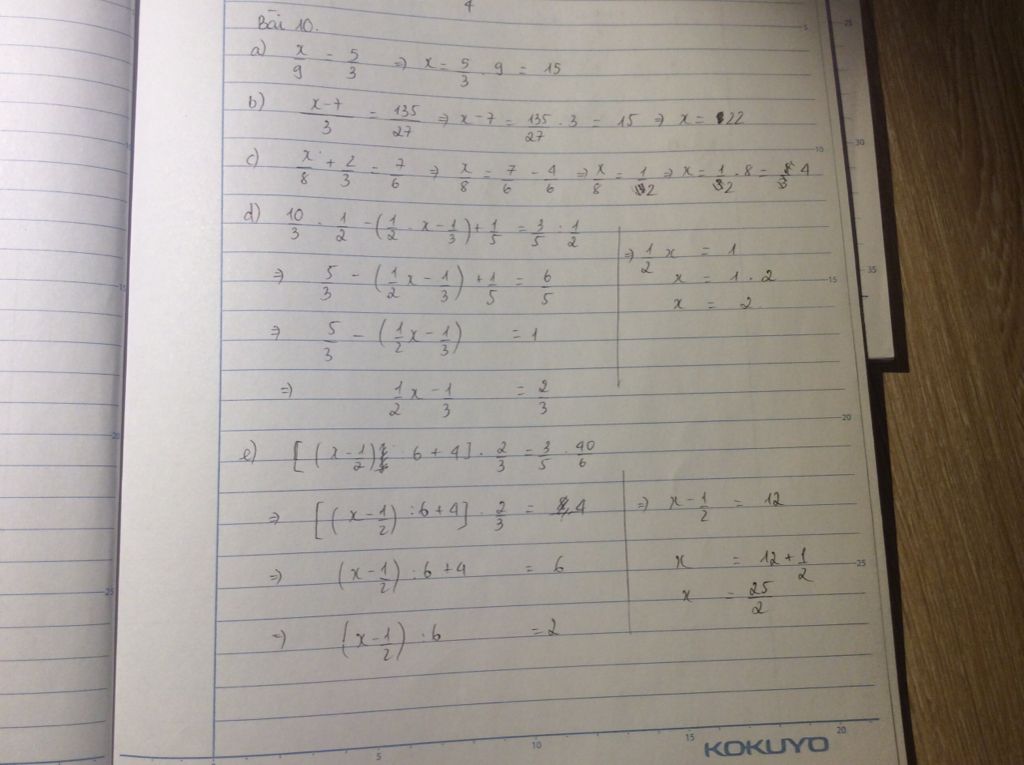 4
Bài 10.
a) x/9 = 5/3 ⇒ x = 5/3 . 9 = 15
b) (x-7)/3 = 135/27 ⇒ x-7 = 135/27 . 3 = 15 ⇒ x = 22
c) x/8 + 2/3 = 7/6 ⇒ x/8 = 7/6 - 4/6 ⇒ x/8 = 1/2 ⇒ x = 1/2 . 8 = 4
d) 10/3 . 1/2 - (1/2 . x - 1/3) + 1/5 = 3/5 : 1/2
⇒ 5/3 - (1/2 x - 1/3) + 1/5 = 6/5
⇒ 5/3 - (1/2 x - 1/3) = 1
⇒ 1/2 x - 1/3 = 2/3
⇒ 1/2 x = 1
x = 1 . 2
x = 2
e) [(x - 1/2) : 6 + 4] . 2/3 = 3/5 . 40/6
⇒ [(x - 1/2) : 6 + 4] . 2/3 = 4
⇒ (x - 1/2) : 6 + 4 = 6
⇒ (x - 1/2) : 6 = 2
⇒ x - 1/2 = 12
x = 12 + 1/2
x = 25/2
5 10 15 20
KOKUYO